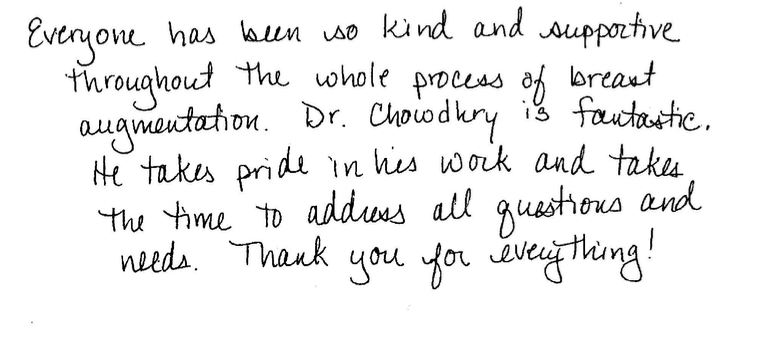 Everyone has been so kind and supportive
throughout the whole process of breast
augmentation. Dr. Chowdhry is fantastic.
He takes pride in his work and takes
the time to address all questions and
needs. Thank you for everything!